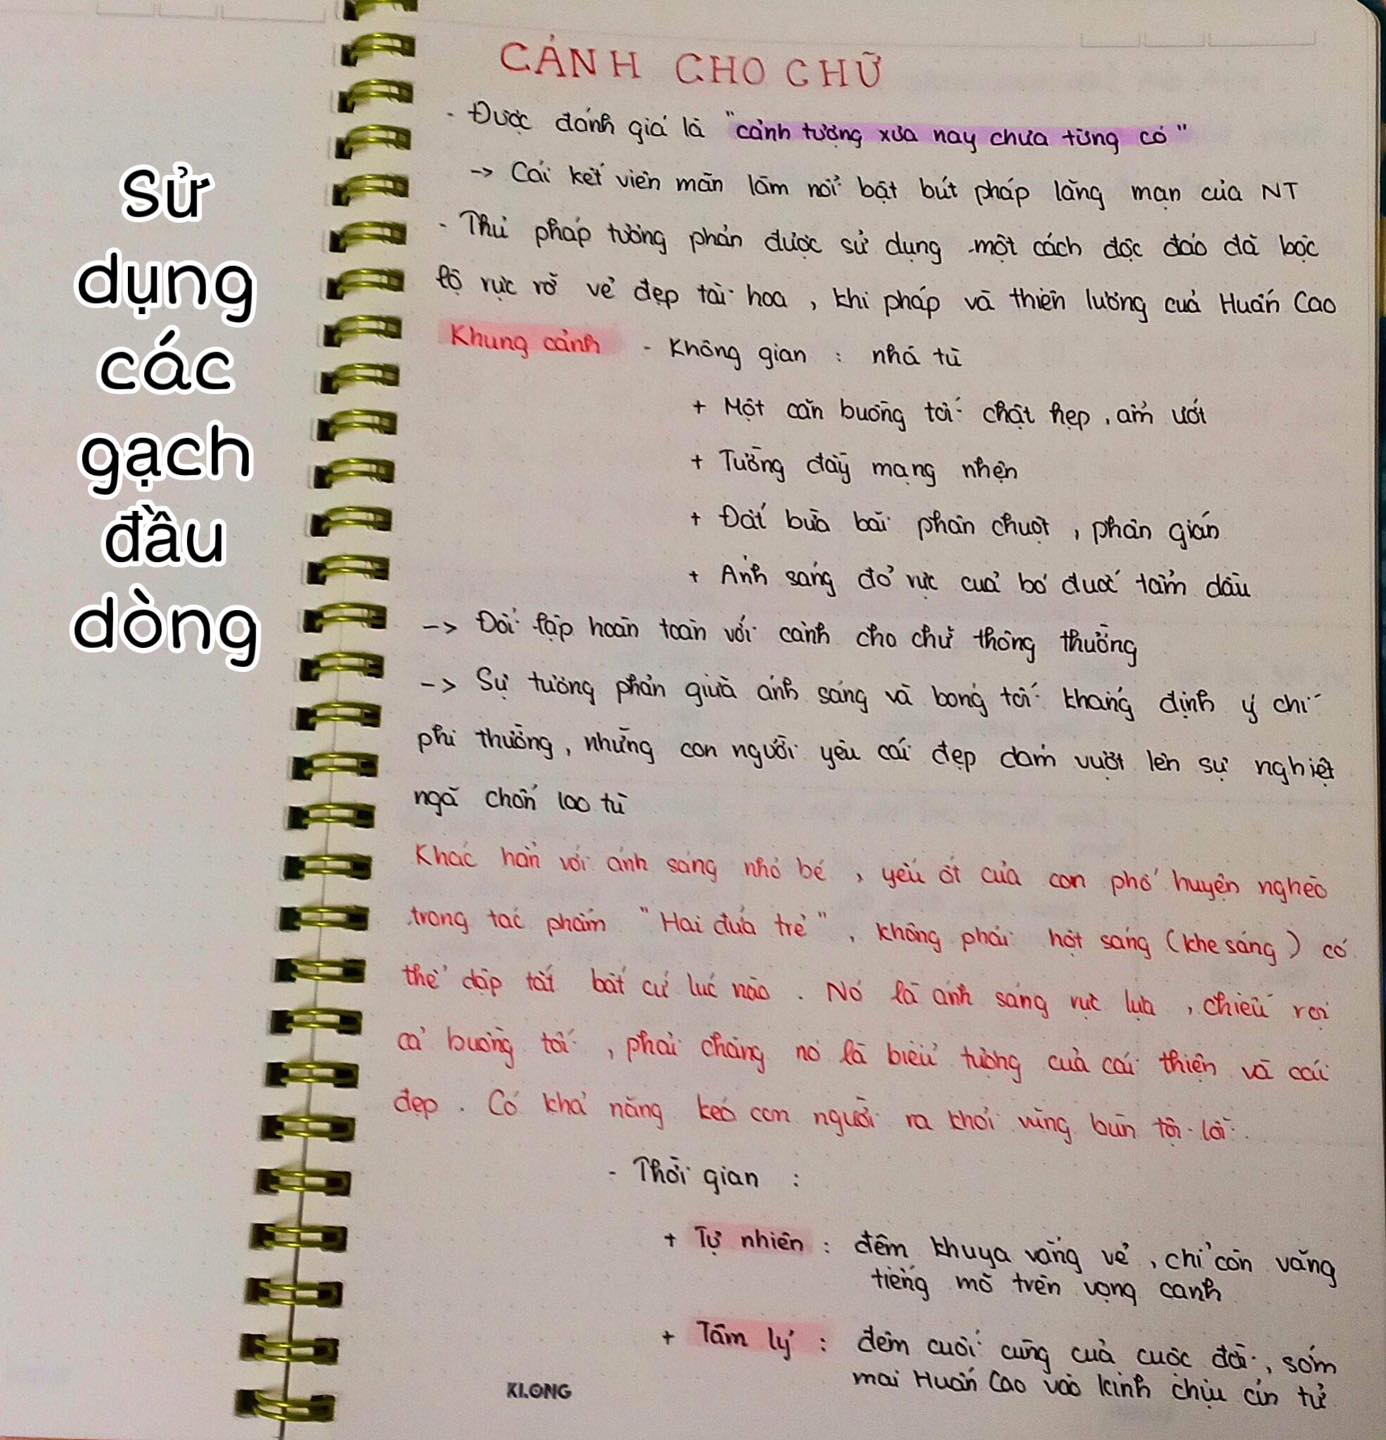 Sử
dụng
các
gạch
đầu
dòng
CẢNH CHO CHỮ
- Được đánh giá là "cảnh tượng xưa nay chưa từng có"
-> Cái kết viên mãn làm nổi bật bút pháp lãng mạn của NT
- Thủ pháp tương phản được sử dụng một cách độc đáo đã bộc
lộ rực rỡ vẻ đẹp tài hoa, khí pháp và thiên lương của Huấn Cao
Khung cảnh - Không gian : nhà tù
+ Một căn buồng tối chật hẹp, ẩm ướt
+ Tường đầy mạng nhện
+ Đất bừa bãi phân chuột, phân gián
+ Ánh sáng đỏ rực của bó đuốc tẩm dầu
-> Đối lập hoàn toàn với cảnh cho chữ thông thường
-> Sự tương phản giữa ánh sáng và bóng tối khẳng định ý chí
phi thường, những con người yêu cái đẹp dám vượt lên sự nghiệt
ngã chốn lao tù
Khác hẳn với ánh sáng nhỏ bé, yếu ớt của con phố huyện nghèo
trong tác phẩm "Hai đứa trẻ", không phải hột sáng (khe sáng) có
thể dập tắt bất cứ lúc nào. Nó là ánh sáng rực lửa, chiếu rọi
cả buồng tối, phải chăng nó là biểu tượng của cái thiện và cái
đẹp. Có khả năng kéo con người ra khỏi vũng bùn tội lỗi.
- Thời gian :
+ Tự nhiên : đêm khuya vắng vẻ, chỉ còn vẳng
tiếng mõ trên vọng canh
+ Tâm lý : đêm cuối cùng của cuộc đời, sớm
mai Huấn Cao vào kinh chịu án tử
KLONG